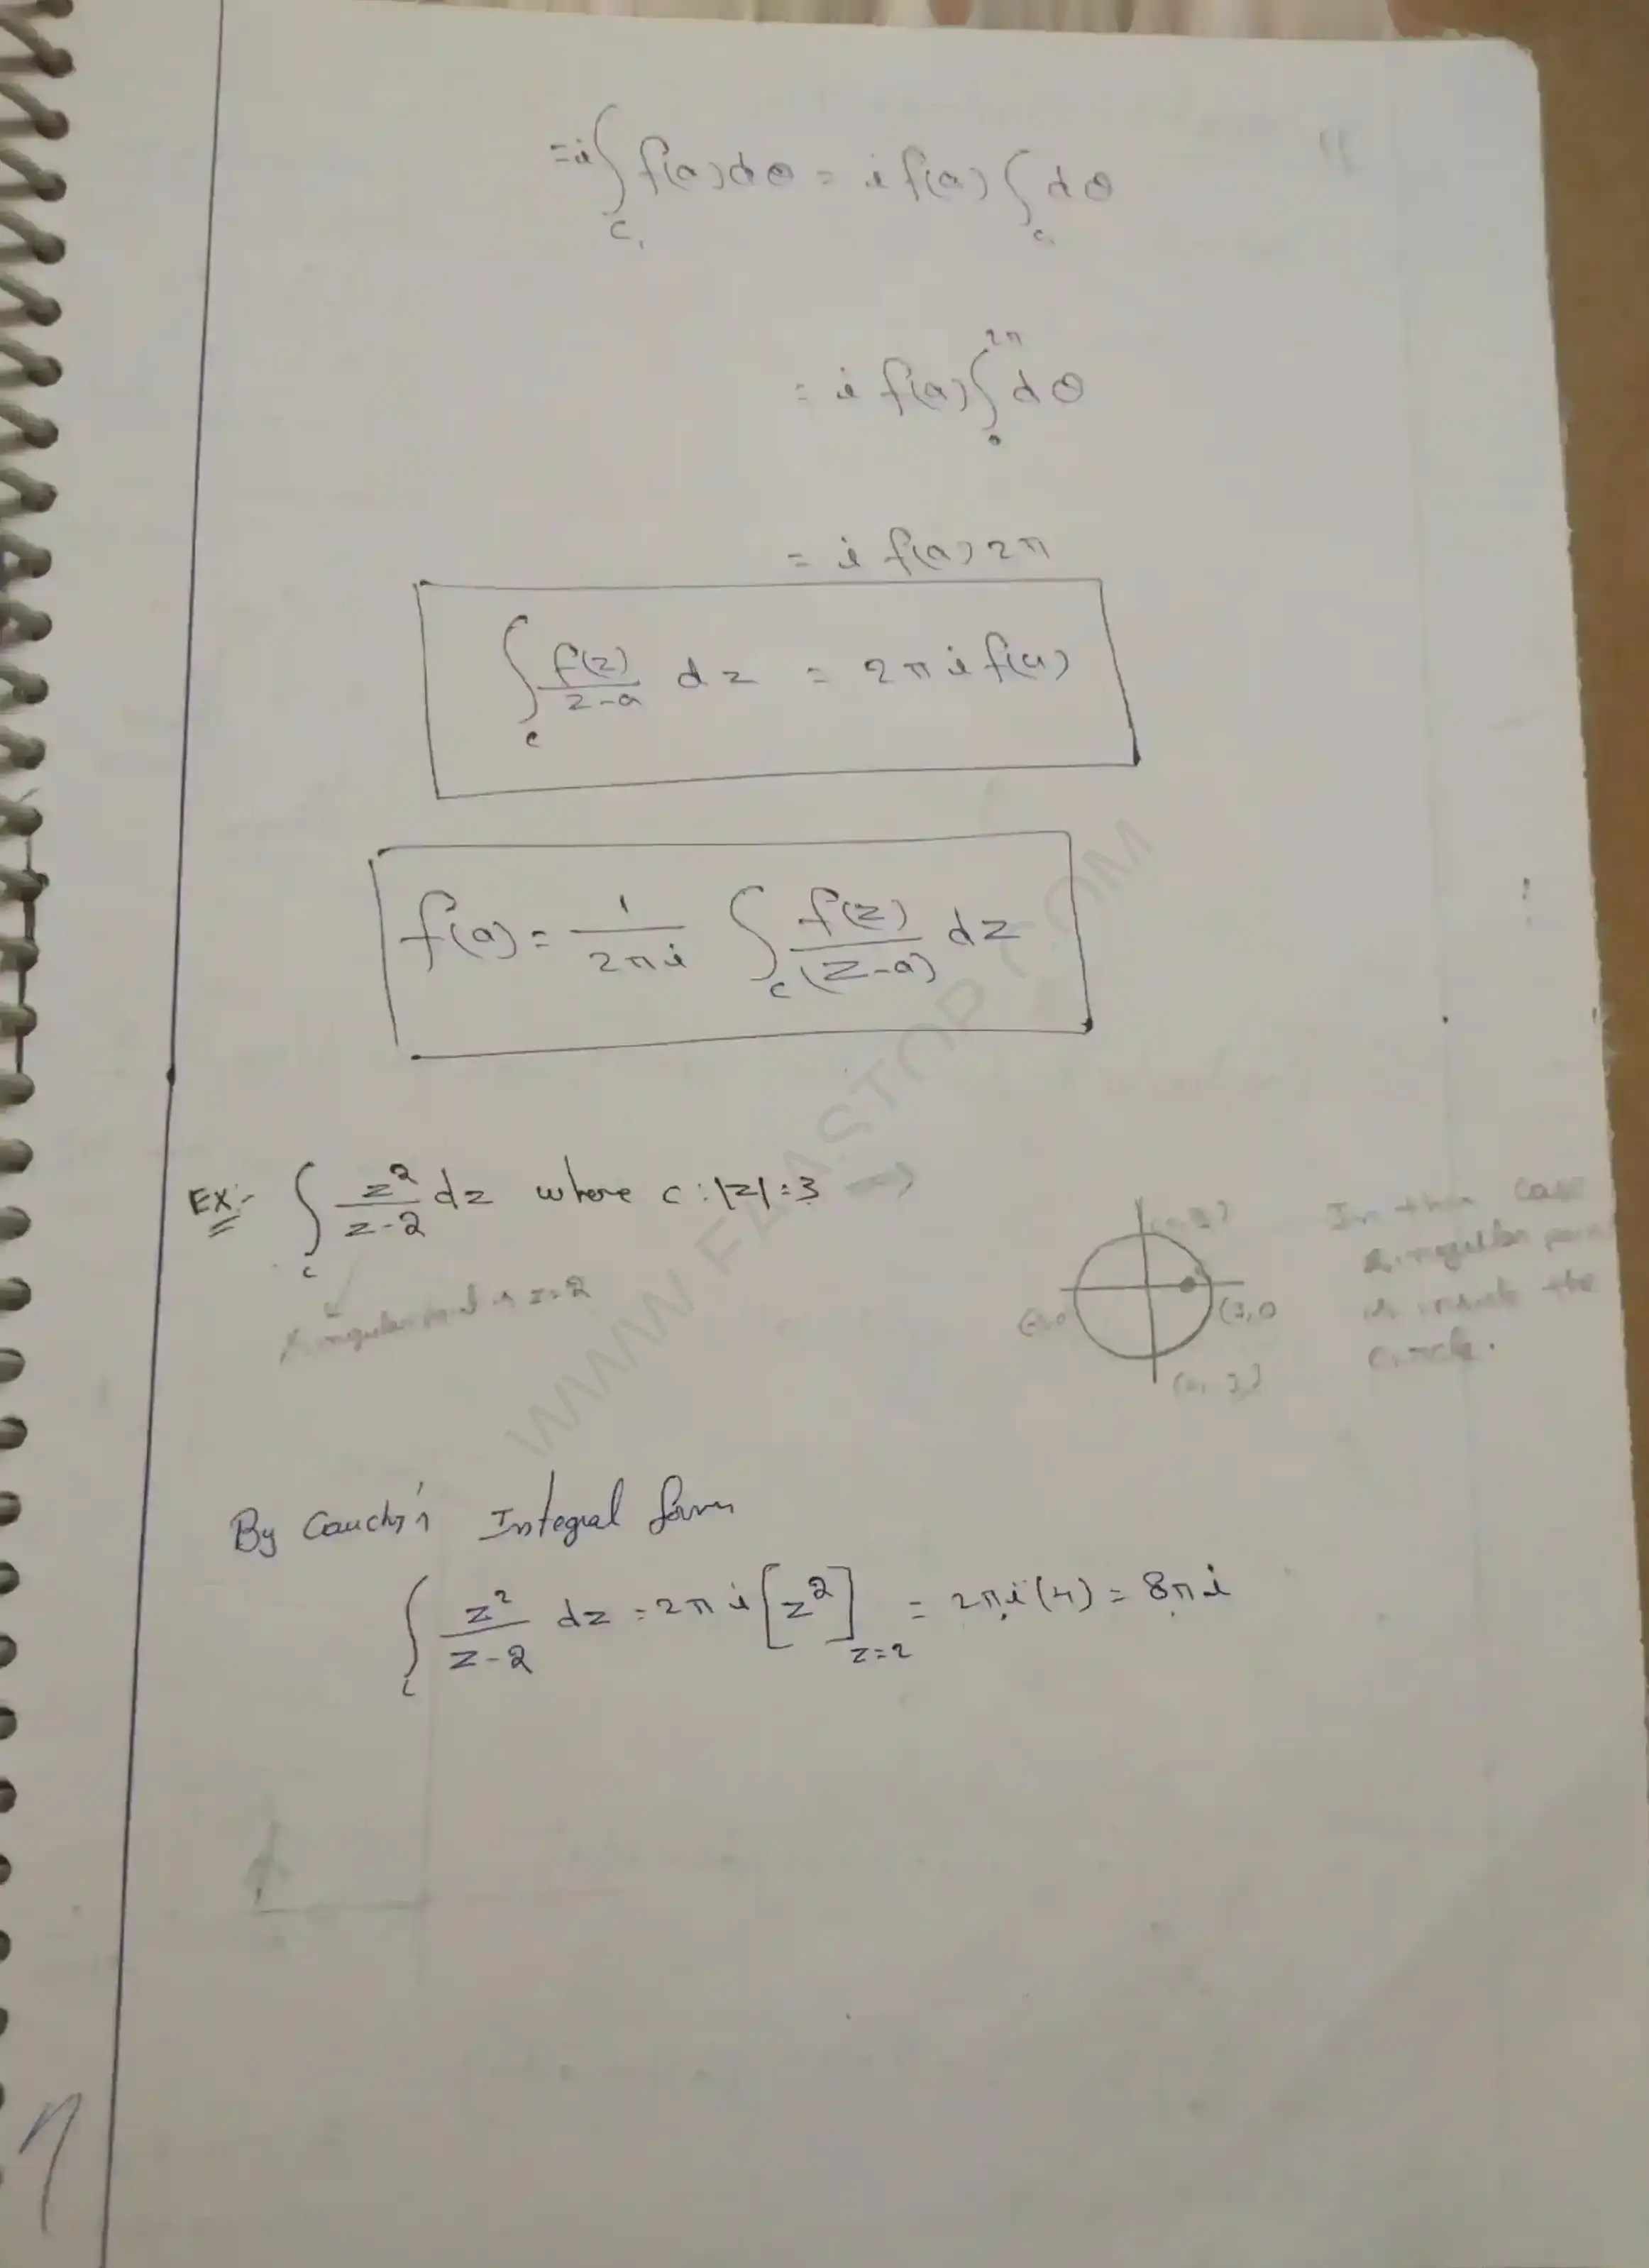 = i ∫_{C₁} f(a) dθ = i f(a) ∫_{C₁} dθ
= i f(a) ∫_0^{2π} dθ
= i f(a) 2π
∫_C f(z)/(z-a) dz = 2πi f(a)
f(a) = 1/(2πi) ∫_C f(z)/(z-a) dz
Ex:- ∫_C z²/(z-2) dz where c : |z| = 3 →
Singular point is z = 2
(3,0
In this case
singular
is inside the
circle.
By Cauchy's Integral form
∫_C z²/(z-2) dz = 2πi [z²]_{z=2} = 2πi(4) = 8πi